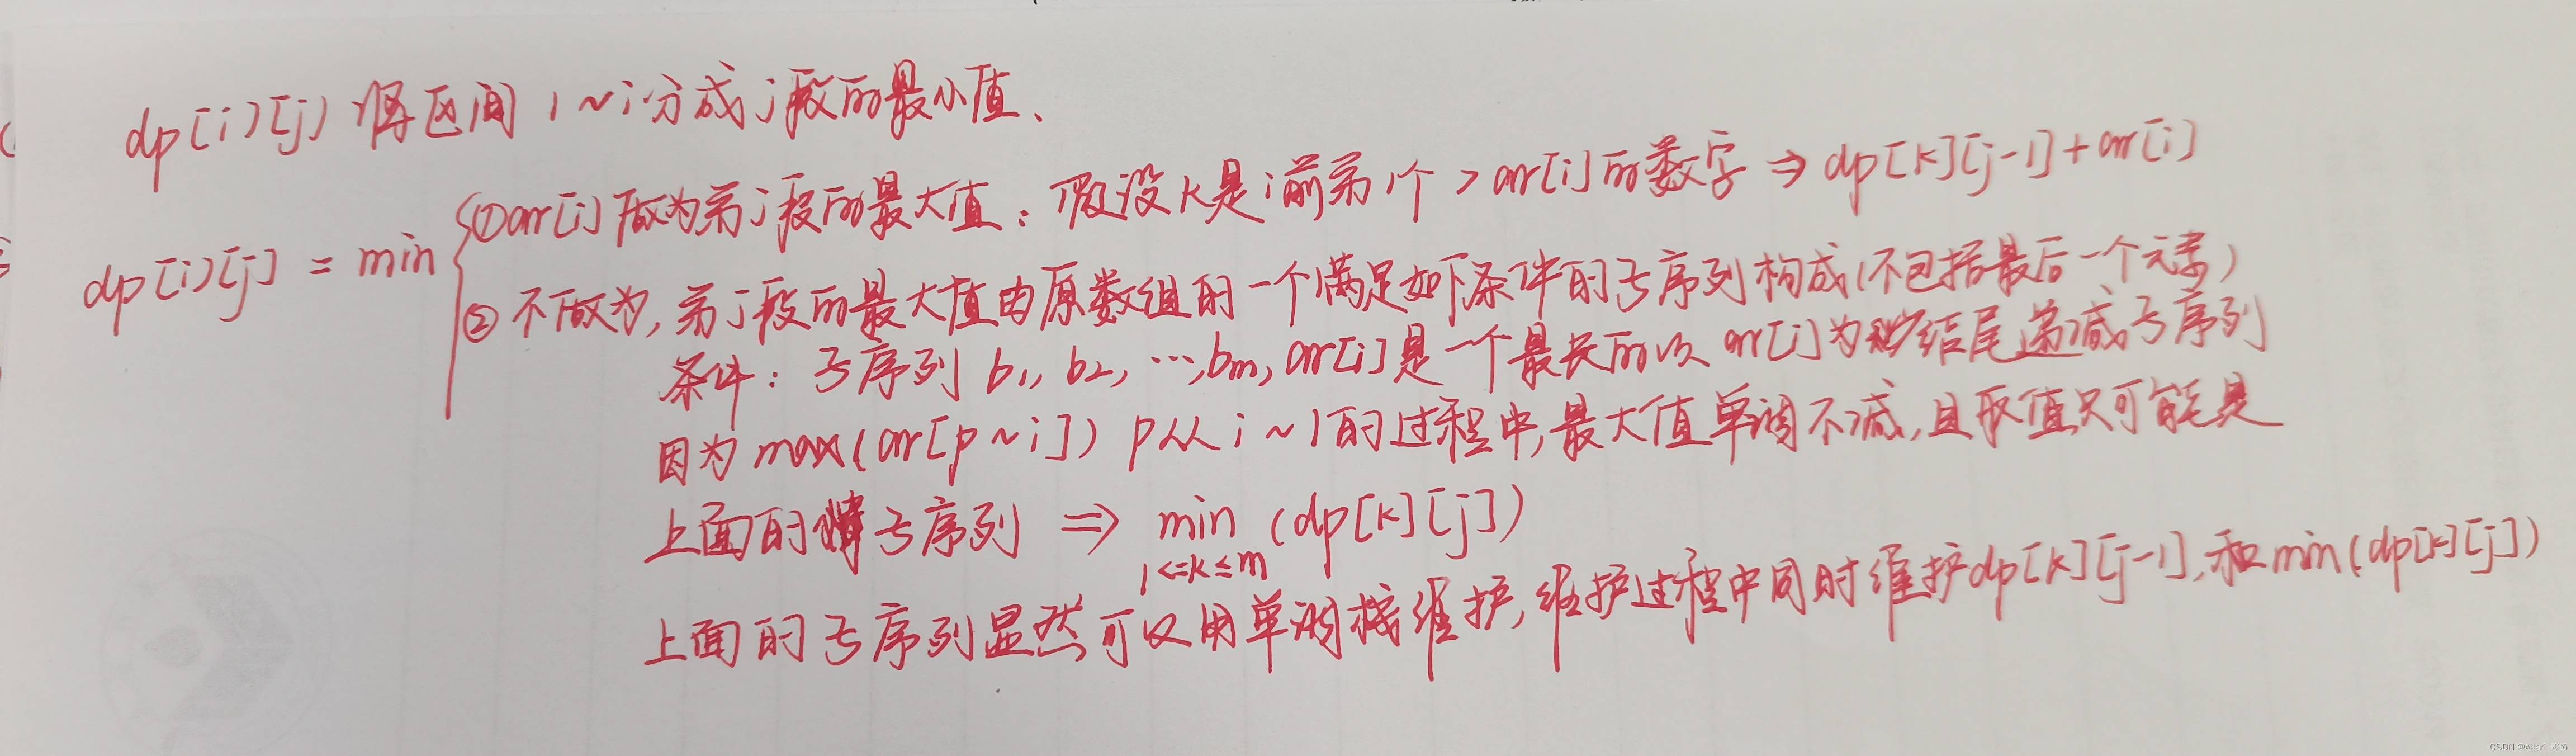 dp[i][j] 将区间 1~i 分成 j 段的最小值、
① arr[i] 做为第 j 段的最大值：假设 k 是 i 前第1个 > arr[i] 的数字 ⇒ dp[k][j-1] + arr[i]
dp[i][j] = min
② 不做为, 第 j 段的最大值由原数组的一个满足如下条件的子序列构成(不包括最后一个元素)
条件：子序列 b1, b2, …, bm, arr[i] 是一个最长的以 arr[i] 为结尾递减子序列
因为 max(arr[p~i]) p从 i~1 的过程中, 最大值单调不减, 且取值只可能是
上面的子序列 ⇒ min (dp[k][j])
1<=k≤m
上面的子序列显然可以用单调栈维护, 维护过程中同时维护 dp[k][j-1], 和 min(dp[k][j])
CSDN @Akari_Kitō